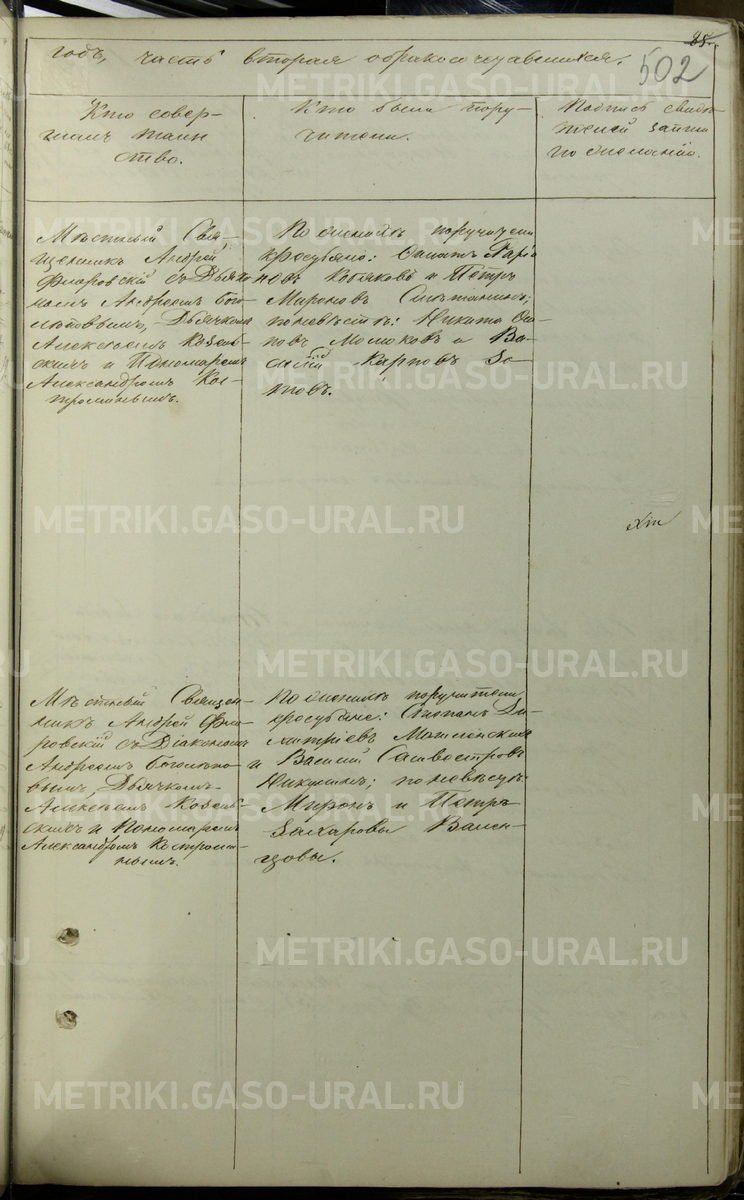 85.
годъ, часть вторая о бракосочетавшихся.
502
Кто совер-
шилъ таин
ство.
Кто были пору-
чители.
Подпись свидѣ-
телей записи
по желанію.
Мѣстный Свя-
щенникъ Андрей
Флоровскій съ Дьяко-
номъ Андреемъ Бого-
любовымъ, Дьячкомъ
Алексѣемъ Козель-
скимъ и Пономаремъ
Александромъ Кос-
троминымъ.
По женихѣ поручители
крестьяне:
новъ Котяковъ и Петръ
Мироновъ
по невѣстѣ: Никита Оси-
повъ Молоковъ и Ва-
силій Карповъ Зы-
ковъ.
Мѣстный Священ-
никъ Андрей Фло-
ровскій съ Діакономъ
Андреемъ Боголюбо-
вымъ, Дьячкомъ
Алексѣемъ Козель-
скимъ и Пономаремъ
Александромъ Костроми-
нымъ.
По женихѣ поручители
крестьяне: Степанъ Ди-
митріевъ
и Василій Сильвестровъ
Никулинъ; по невѣстѣ
Миронъ и Петръ
Захаровы Вален-
цовы.
METRIKI.GASO-URAL.RU